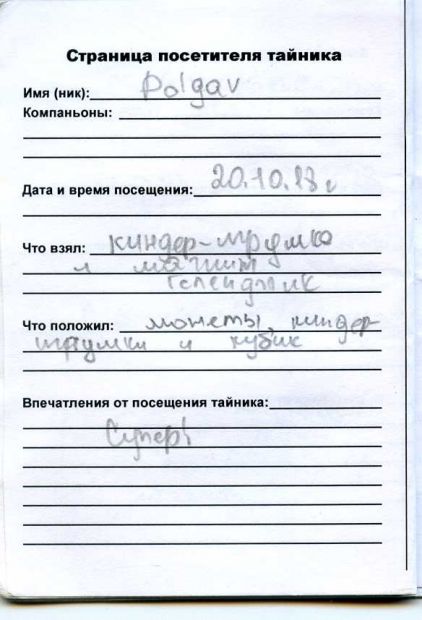 Страница посетителя тайника
Имя (ник): Polgav
Компаньоны:
Дата и время посещения: 20.10.18 г
Что взял: киндер-игрушка
и магнит
Геленджик
Что положил: монеты, киндер
игрушки и кубик
Впечатления от посещения тайника:
Супер!